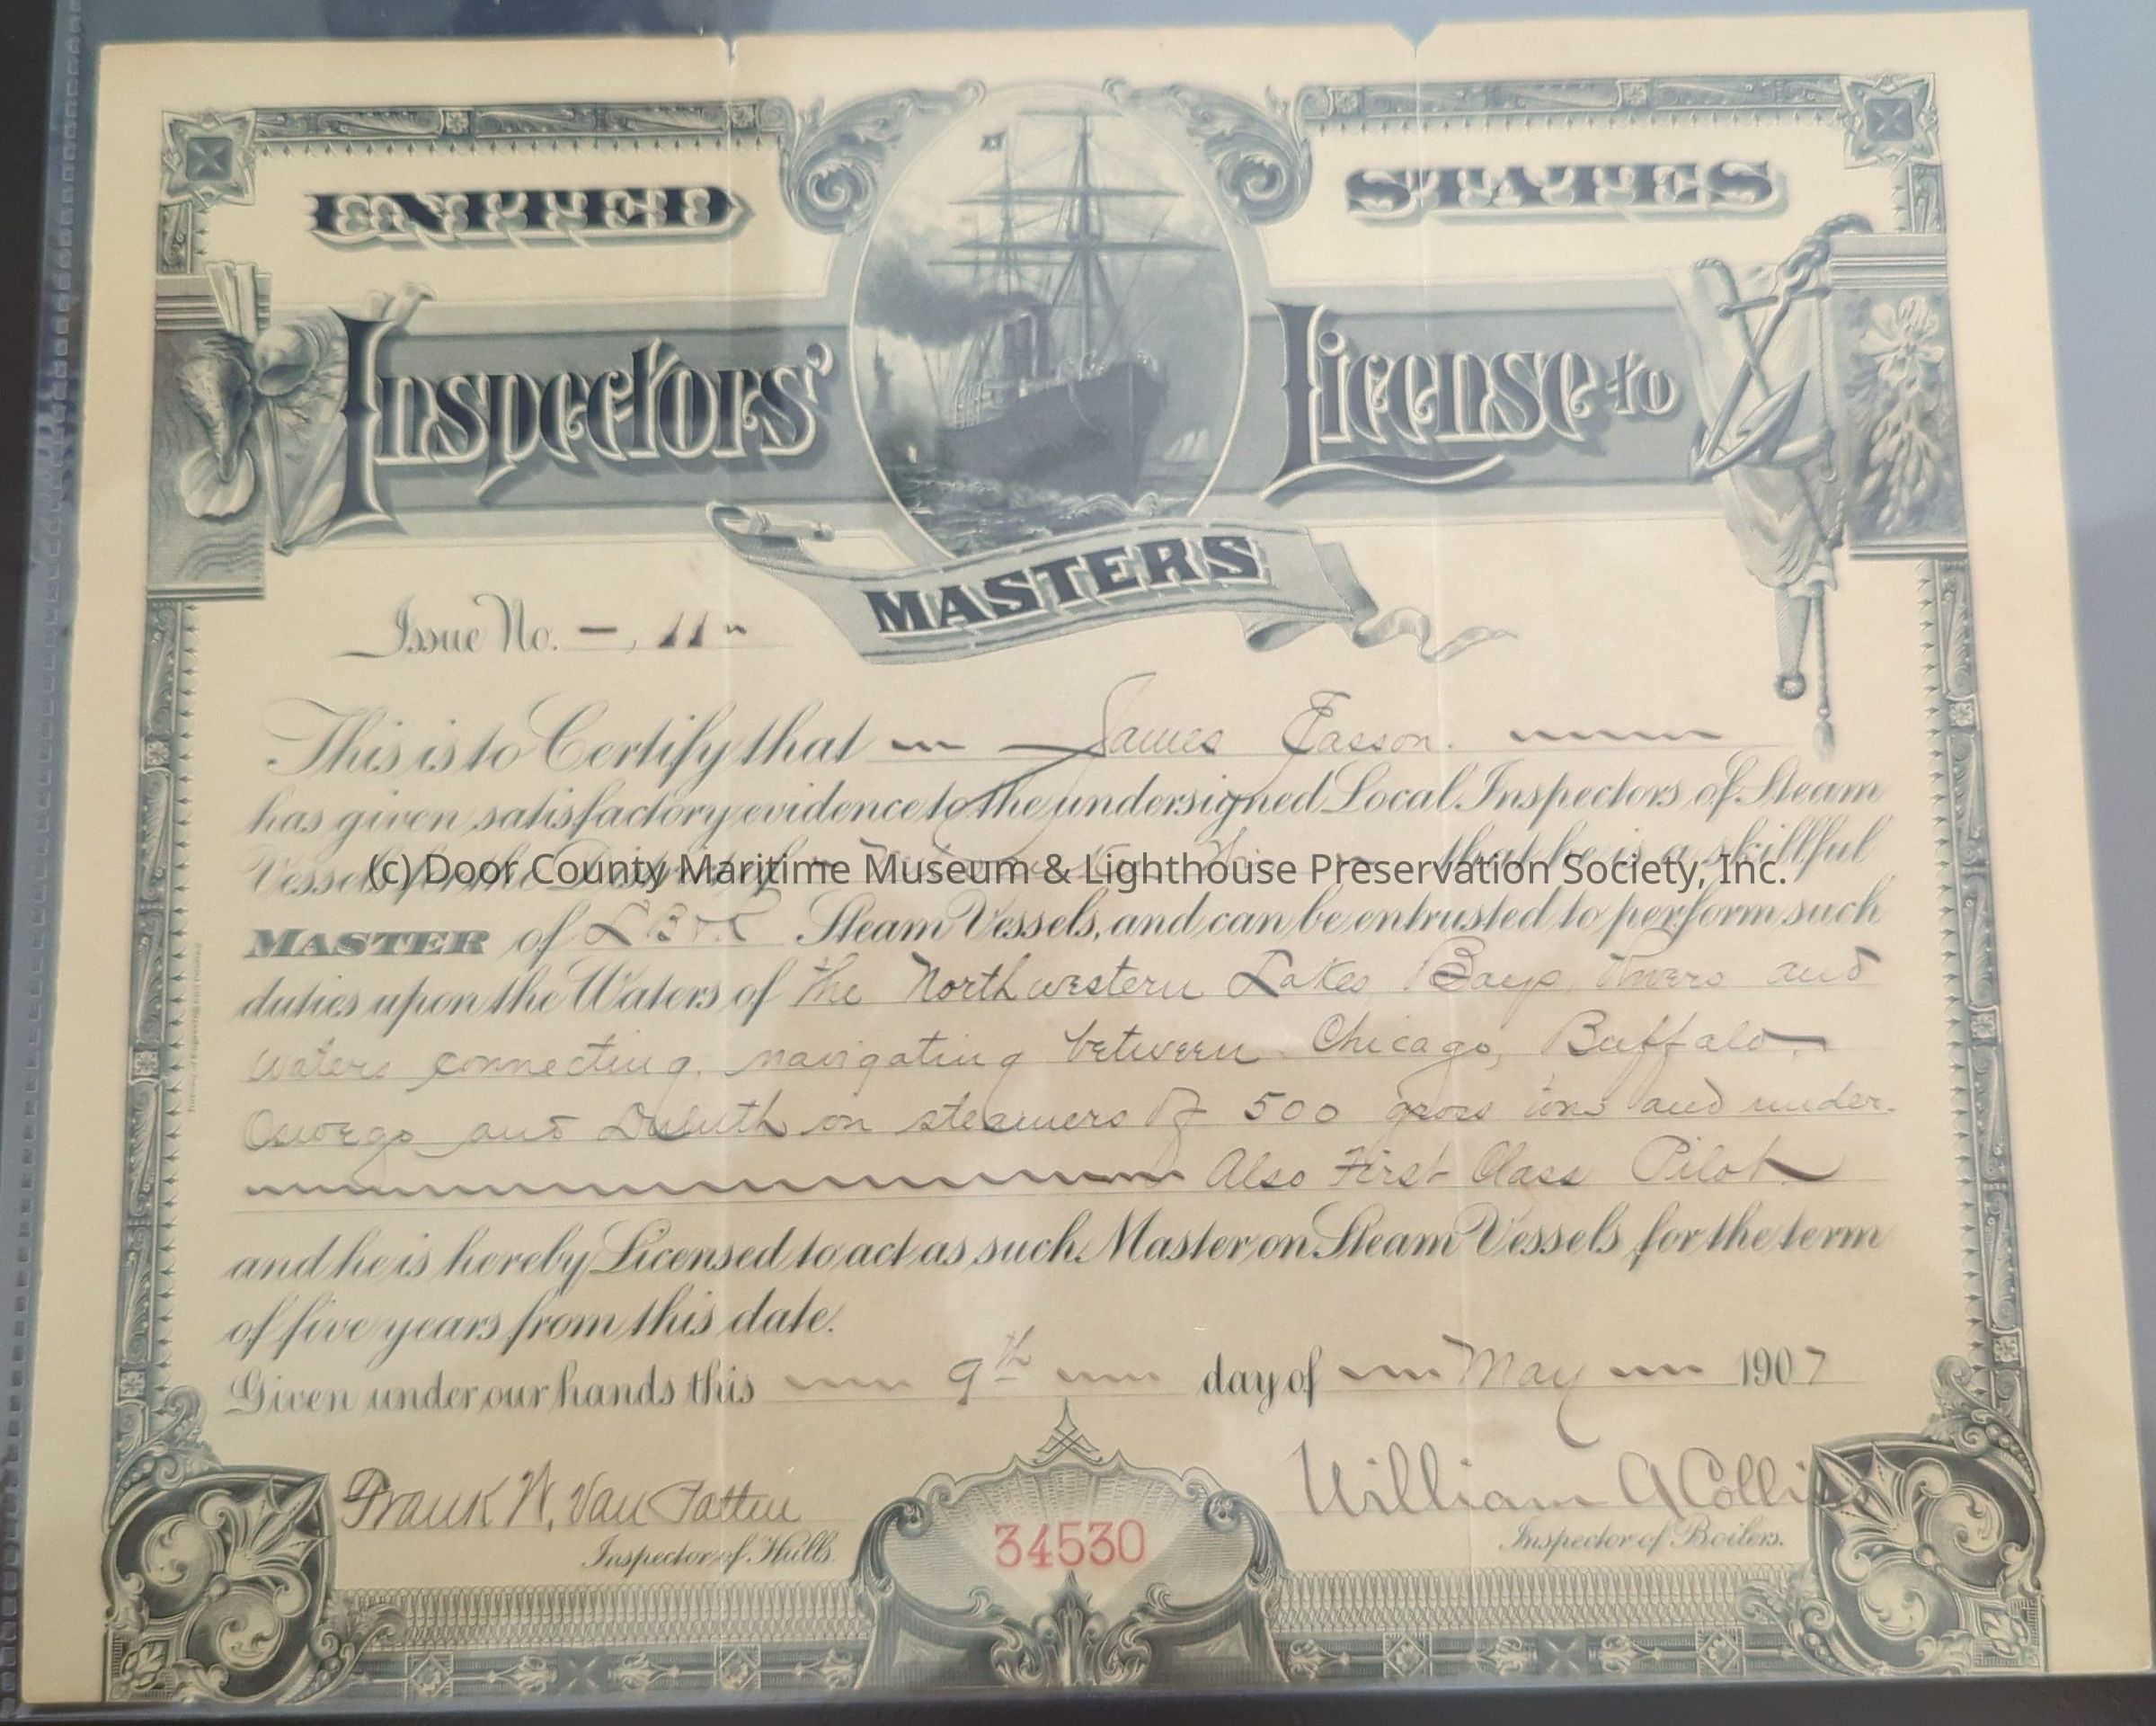 UNITED STATES
Inspectors' License to
MASTERS
Issue No. 11
This is to Certify that James Easson.
has given satisfactory evidence to the undersigned Local Inspectors of Steam
Vessels for the District of Milwaukee, Wis. that he is a skillful
(c) Door County Maritime Museum & Lighthouse Preservation Society, Inc.
MASTER of Steam Vessels, and can be entrusted to perform such
duties upon the Waters of the Northwestern Lakes, Bays, Rivers and
Waters connecting, navigating between Chicago, Buffalo,
Oswego and Duluth on steamers of 500 gross tons and under.
Also First Class Pilot
and he is hereby Licensed to act as such Master on Steam Vessels for the term
of five years from this date.
Given under our hands this 9th day of May 1907
Frank W. Van Patten William A Collins
Inspector of Hulls. Inspector of Boilers.
34530